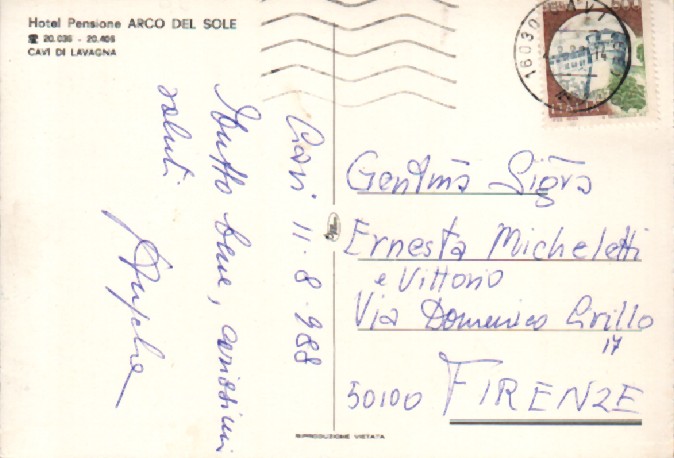 Hotel Pensione ARCO DEL SOLE
☎ 20.036 - 20.406
CAVI DI LAVAGNA
16030 CAVI
500
Cavi 11.8.988
tutto bene, carissimi
saluti
Gentma Sigra
Ernesta Micheletti
e Vittorio
Via Domenico Cirillo
17
50100 FIRENZE
RIPRODUZIONE VIETATA